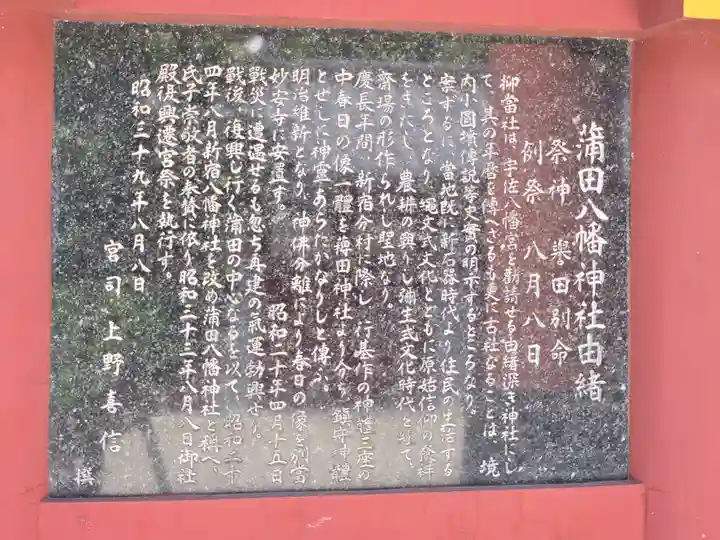 蒲田八幡神社由緒
祭神 譽田別命
例祭 八月八日
抑當社は、宇佐八幡宮を勧請せる由緒深き神社にし
て、其の年暦を傳へざるも更に古社なることは、境
内小圓墳傳説等史實の明示するところなり。
案ずるに、當地既に新石器時代より住民の生活する
ところとなり、縄文式文化とともに原始信仰の
をきたし、農耕の興りし彌生式文化時代を
齋場の形作られし聖地なり。
慶長年間、新宿分村に際し、行基作の神體三座の
中春日の像一體を蒲田神社より分ち、鎮守神體
とせしに神霊あらたかなりしと傳ふ。
明治維新となり、神佛分離により春日の像を別當
妙安寺に安置す。 昭和二十年四月十五日
戰災に遭遇せるも忽ち再建の氣運勃興せり。
戰後、復興し行く蒲田の中心なるを以て、昭和二十
四年八月新宿八幡神社を改め蒲田八幡神社と稱へ、
氏子崇敬者の奉賛に依り昭和三十三年八月八日御社
殿復興遷宮祭を執行す。
昭和三十九年八月八日
宮司 上野喜信 撰